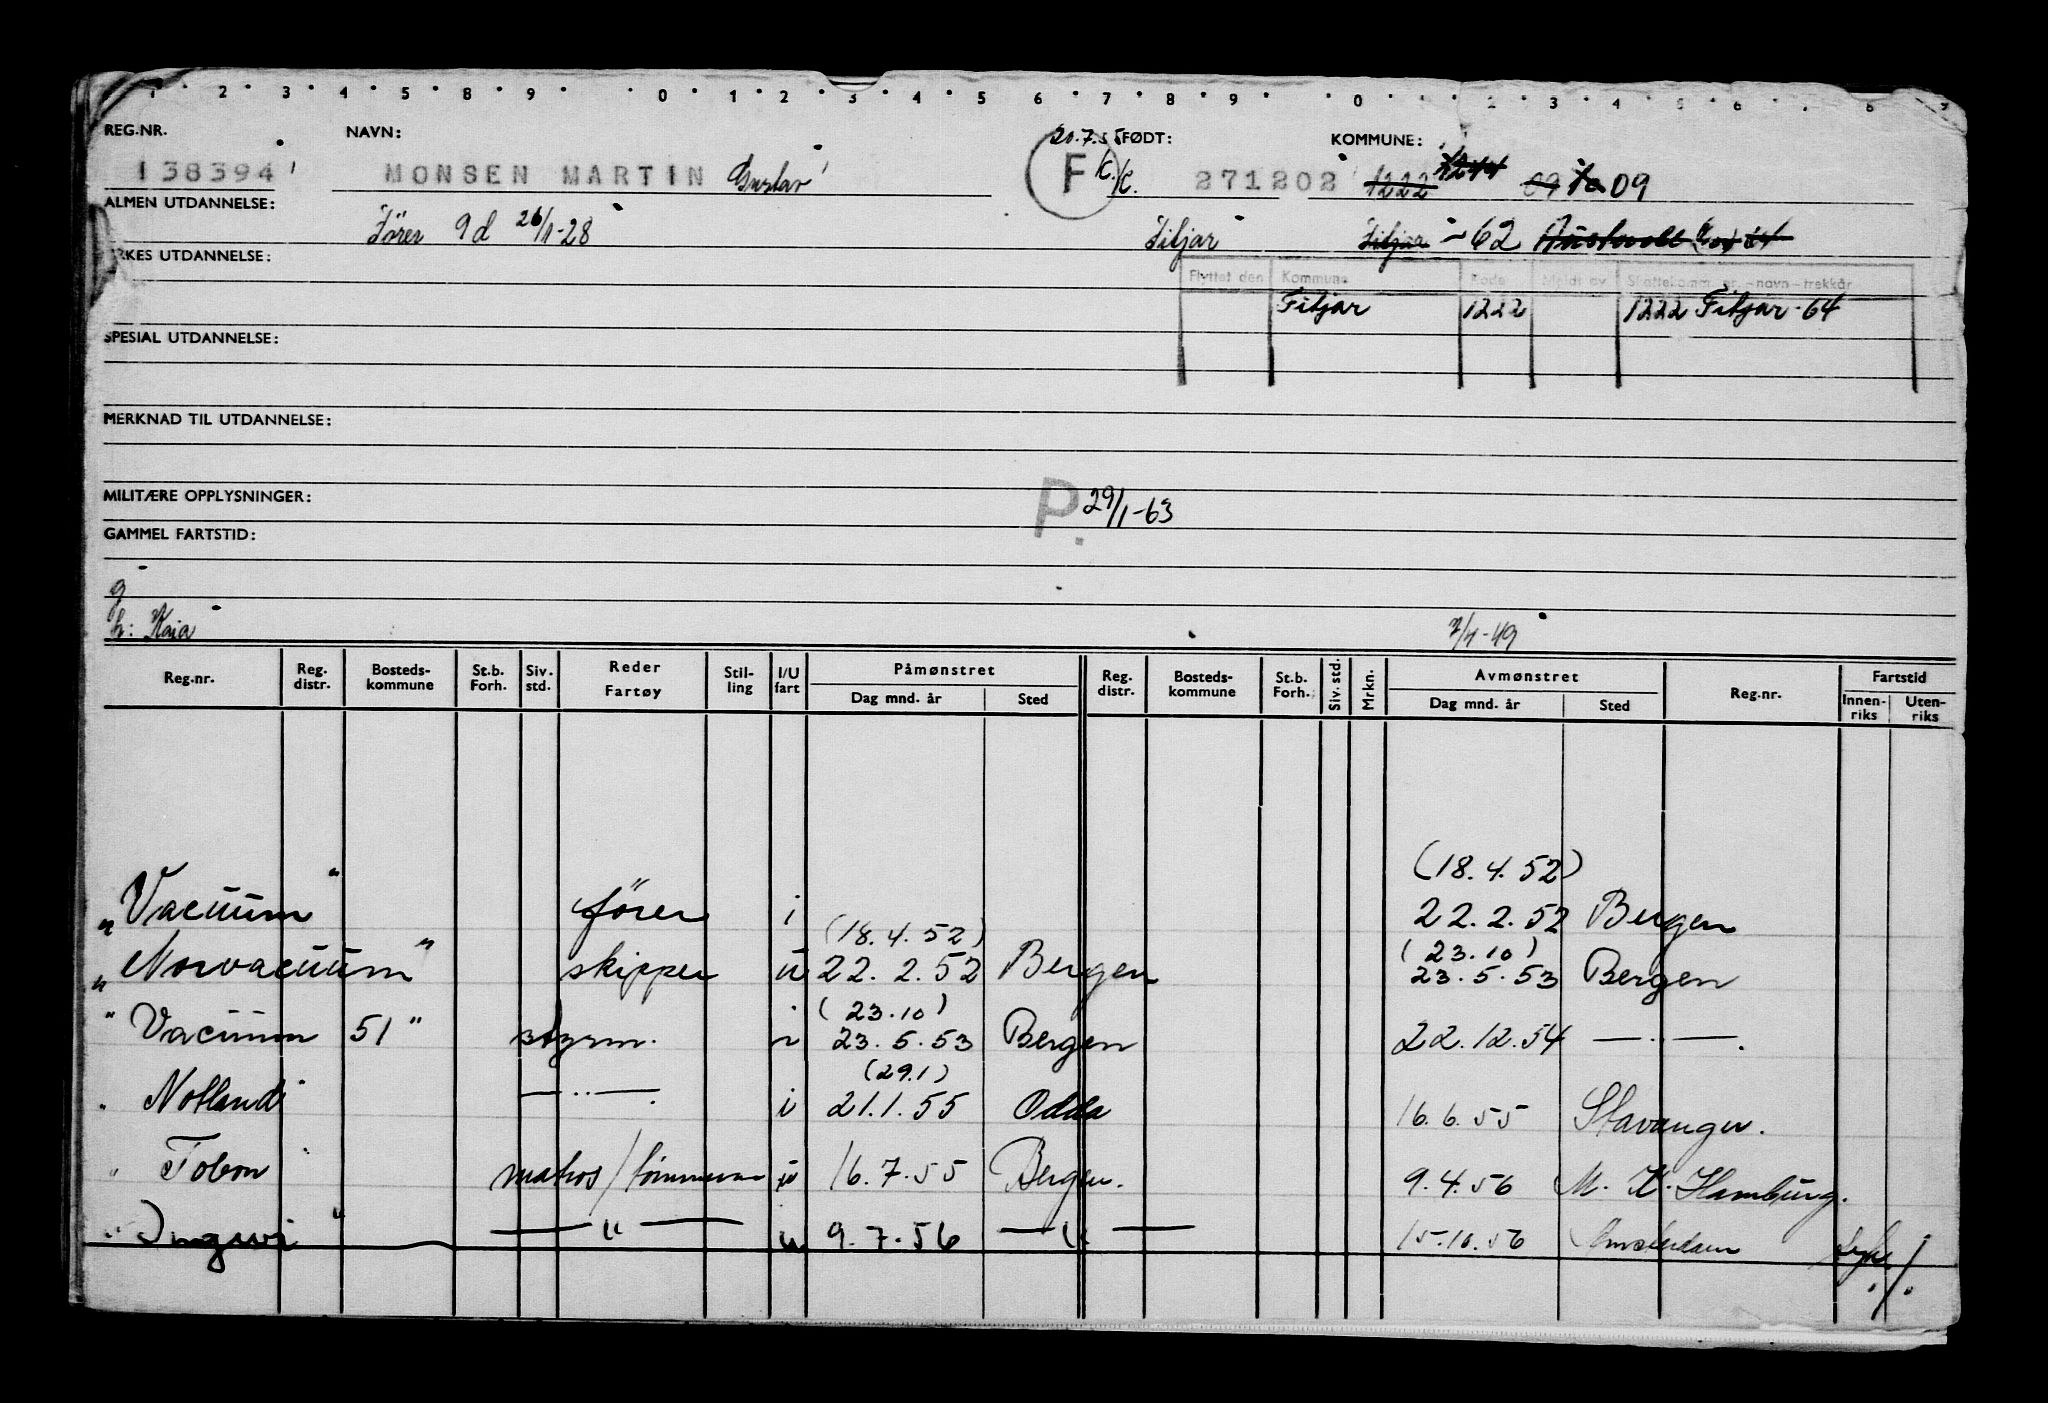 1 2 3 4 5 8 9 0 1 2 3 4 5 6 7 8 9 0 1 2 3 4 5 6 8
REG.NR. NAVN: 20.7.55 FØDT: KOMMUNE:
138394 MONSEN MARTIN Gustav F K./K. 271202 1222 1244 09 10 09
ALMEN UTDANNELSE: Fører 9d 26/1-28 Fitjar Fitjar -62 Austevoll
YRKES UTDANNELSE:
Flyttet den Kommune Kode Meldt av Skattekomm. nr. - navn - trekkår
Fitjar 1222 1222 Fitjar - 64
SPESIAL UTDANNELSE:
MERKNAD TIL UTDANNELSE:
MILITÆRE OPPLYSNINGER: P. 29/1-63
GAMMEL FARTSTID:
g
h: Kaia 7/4-49
Reg.nr. Reg. distr. Bosteds-kommune St.b. Forh. Siv. std. Reder Fartøy Stil-ling I/U fart Påmønstret Dag mnd. år Sted Reg. distr. Bosteds-kommune St.b. Forh. Siv. std. Mrkn. Avmønstret Dag mnd. år Sted Reg.nr. Fartstid Innen-riks Uten-riks
(18.4.52)
"Vacuum" fører i 22.2.52 Bergen
(18.4.52) (23.10)
"Norvacuum" skipper u 22.2.52 Bergen 23.5.53 Bergen
(23.10)
"Vacuum 51" styrm. i 23.5.53 Bergen 22.12.54 — " —.
(29.1)
" Notland — " —. i 21.1.55 Odda 16.6.55 Stavanger.
" Tobon matros/tømmerm u 16.7.55 Bergen. 9.4.56 M. K. Hamburg.
" Ingwi " — " — u 9.7.56 — " — 15.10.56 Amsterdam syk ./.